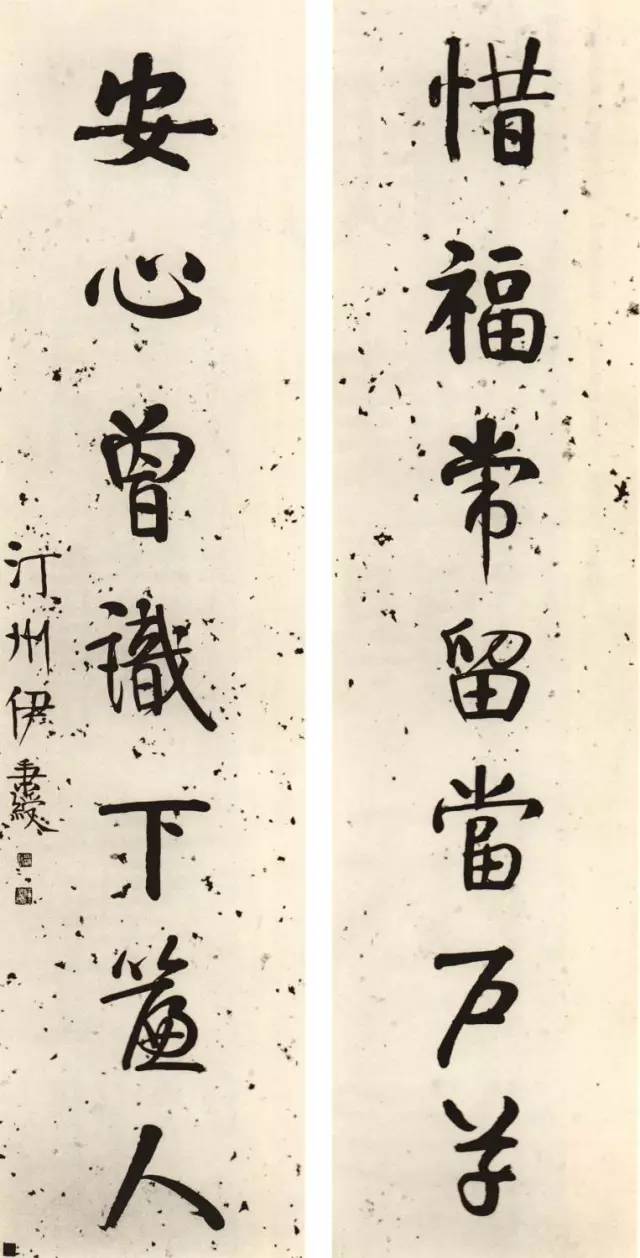 惜福常留當戶草
安心曾識下簾人
汀州伊秉綬